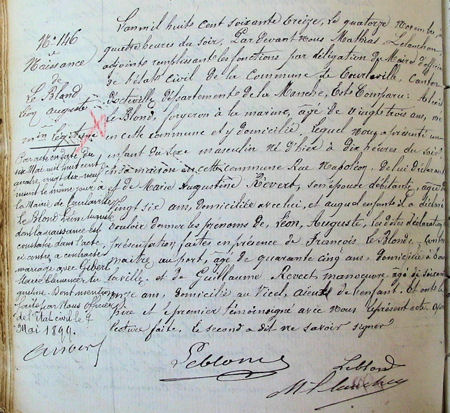 N.º 146
Naissance
de
Le Blond
Léon Auguste
L'an mil huit cent soixante treize, le quatorze Novembre,
quatre heures du soir, Par devant nous Mathias
adjoint remplissant les fonctions par délégation de Maire d'officier
de l'état civil de la Commune de Tourlaville, Canton
d'Octeville, département de la Manche, Est Comparu:
Le Blond, forgeron à la marine, âgé de vingt trois ans, né
en cette commune et y domicilié, lequel nous a présenté un
enfant du sexe masculin né d'hier à dix heures du soir
en sa maison en cette commune Rue Napoléon, de lui déclarant
et de Marie Augustine Revert, son épouse, débitante, âgée de
vingt six ans, domiciliée avec lui, et auquel enfant il a déclaré
vouloir donner les prénoms de Léon, Auguste, les dites déclaration
présentation faites en présence de François Le Blond, contre
maître au port, âgé de quarante cinq ans, domicilié à
laville et de Guillaume Revert manoeuvre âgé de soixante
onze ans, domicilié au Vicel, aïeuls de l'enfant. Et ont le
père et premier témoin signé avec nous le présent acte. Après
lecture faite, le second a dit ne savoir signer
Par acte en date du
six Mai mil huit cent
quatre vingt dix-neuf
à
la Mairie de Tourlaville
Le Blond Léon Auguste
dont la naissance est
constatée dans l'acte
ci contre, a contracté
mariage avec Gibert
Dont mention
faite par Nous officier
de l'état civil le 7
Mai 1899.
Leblond
Leblond